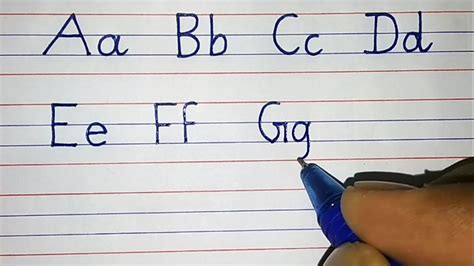 Aa Bb Cc Dd
Ee Ff Gg